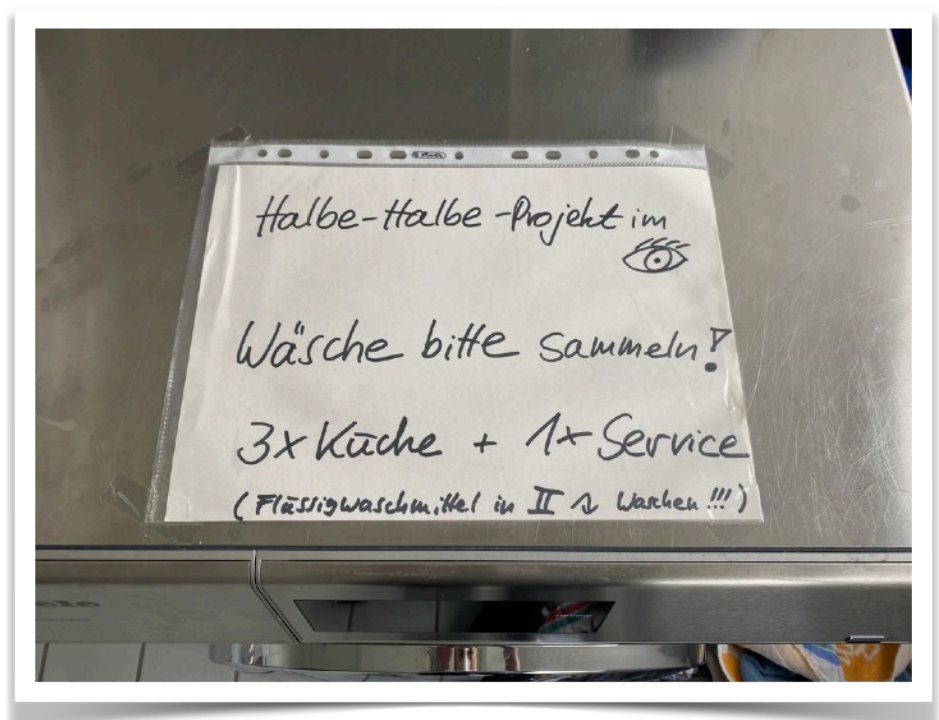 Halbe-Halbe-Projekt im
Wäsche bitte sammeln!
3x Küche + 1x Service
(Flüssigwaschmittel in II Waschen!!!)